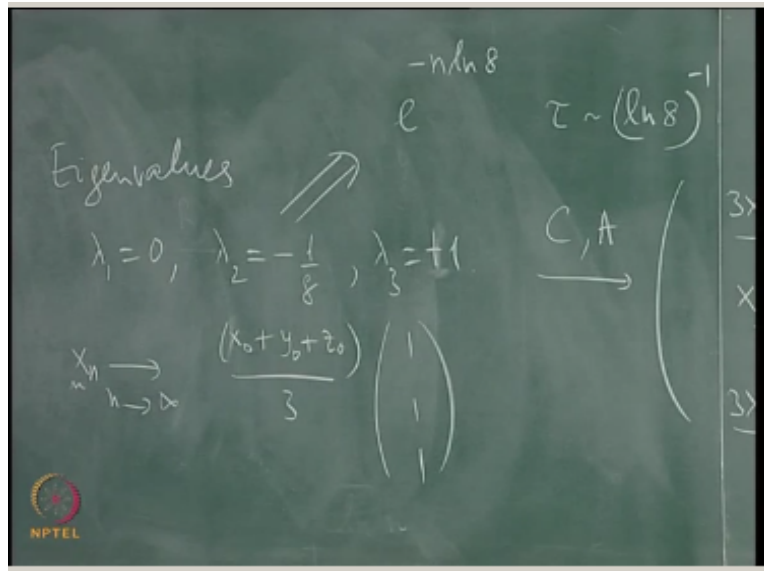 e^{-n ln 8}
τ ~ (ln 8)^{-1}
Eigenvalues
λ₁ = 0, λ₂ = -1/8, λ₃ = +1
C, A
3x
x
3x
x_n → (x₀ + y₀ + z₀)/3 (1 1 1)
n→∞
NPTEL